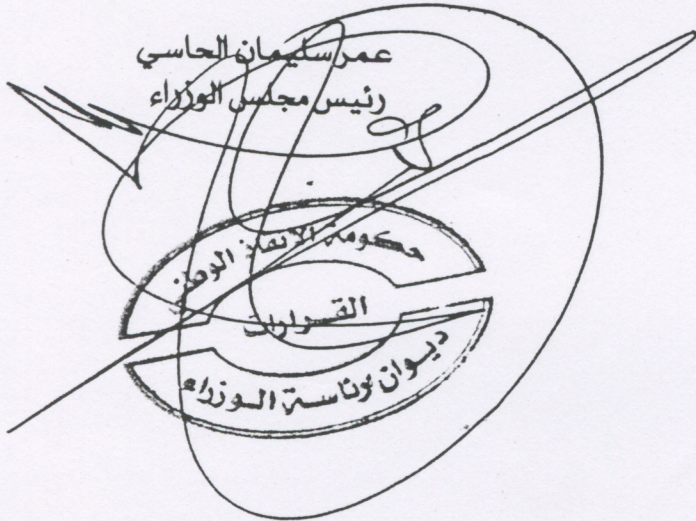 عمر سليمان الحاسي
رئيس مجلس الوزراء
حكومة الإنقاذ الوطني
القرارات
ديوان رئاسة الوزراء